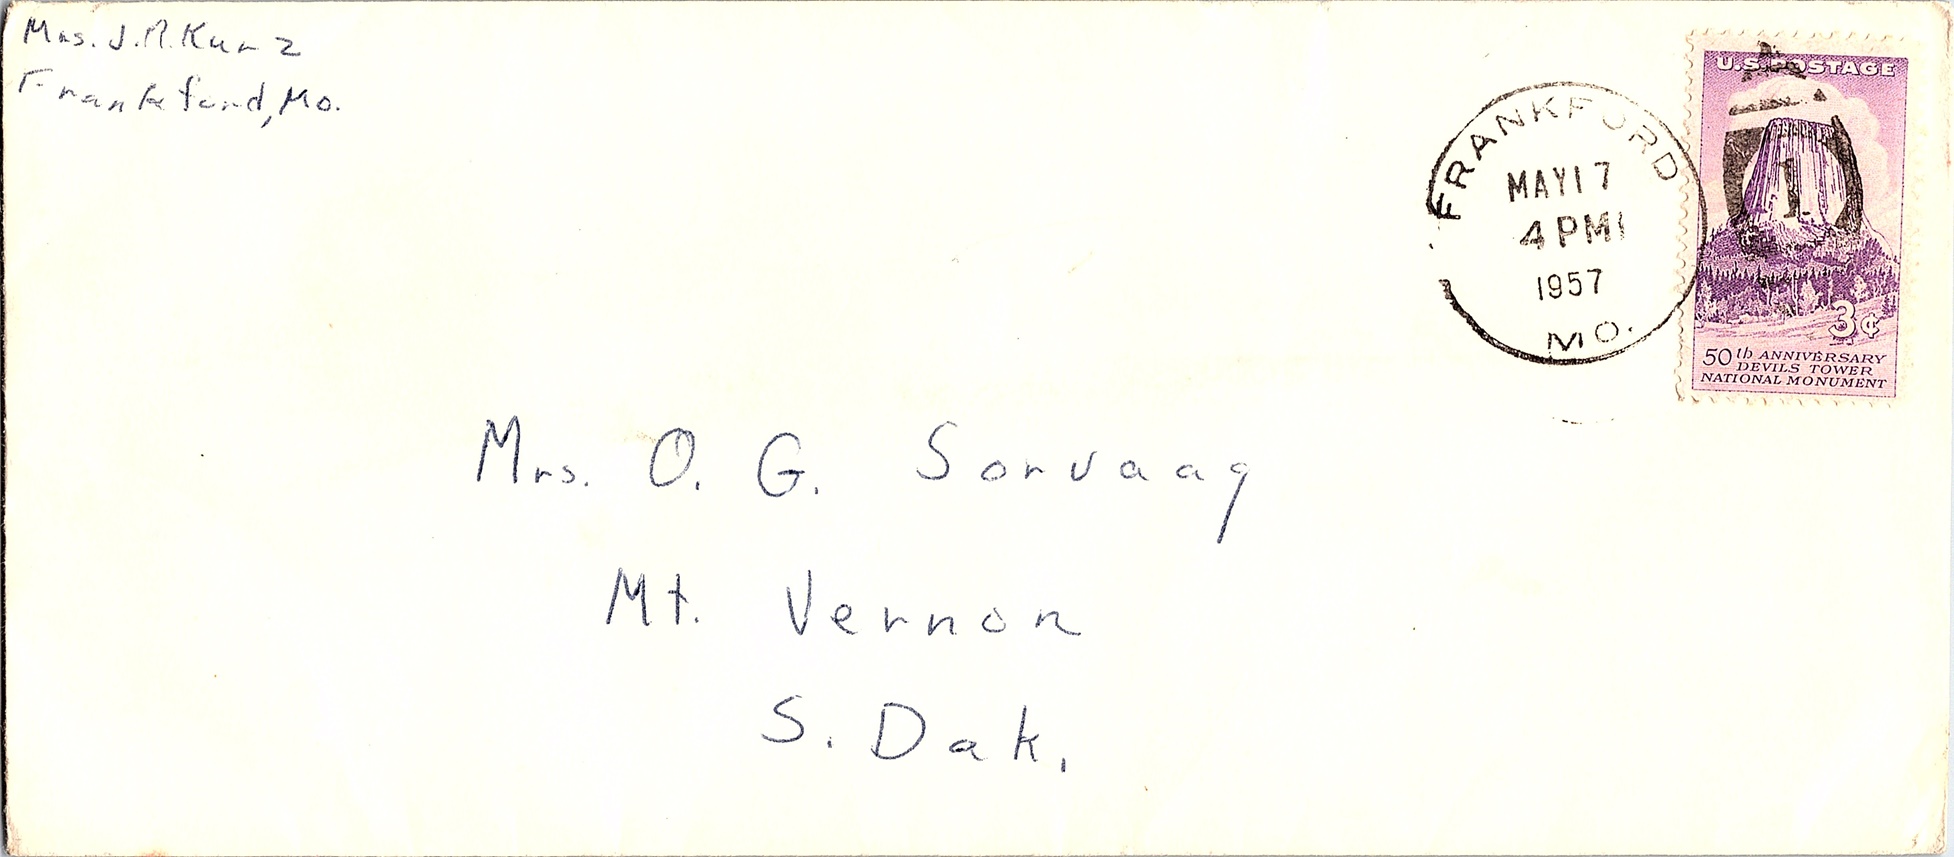 Mrs. J. R. Kurz
Frankford, Mo.
FRANKFORD
MAY 17
4 PM
1957
MO.
U.S. POSTAGE
1
3¢
50th ANNIVERSARY
DEVILS TOWER
NATIONAL MONUMENT
Mrs. O. G. Sorvaag
Mt. Vernon
S. Dak.